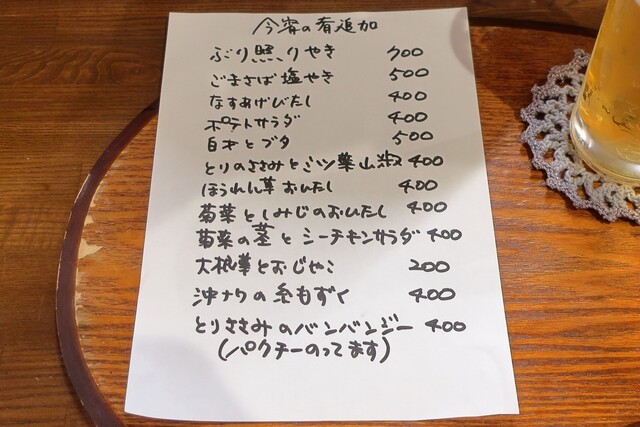 今宵の肴追加
ぶり照りやき 700
ごまさば塩やき 500
なすあげびたし 400
ポテトサラダ 400
白才とブタ 500
とりのささみとミツ葉山椒 400
ほうれん草おひたし 400
菊菜としめじのおひたし 400
菊菜の茎とシーチキンサラダ 400
大根葉とおじゃこ 200
沖ナワの糸もずく 400
とりささみのバンバンジー 400
(パクチーのってます)